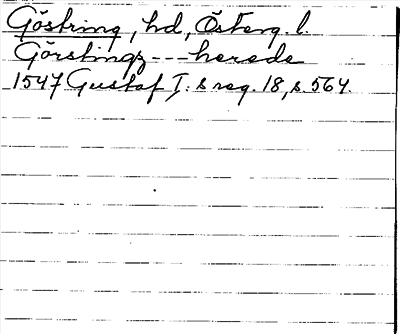 Göstring, hd, Österg. l.
Görstingz --- herede
1547 Gustaf I:s reg. 18, s. 564.